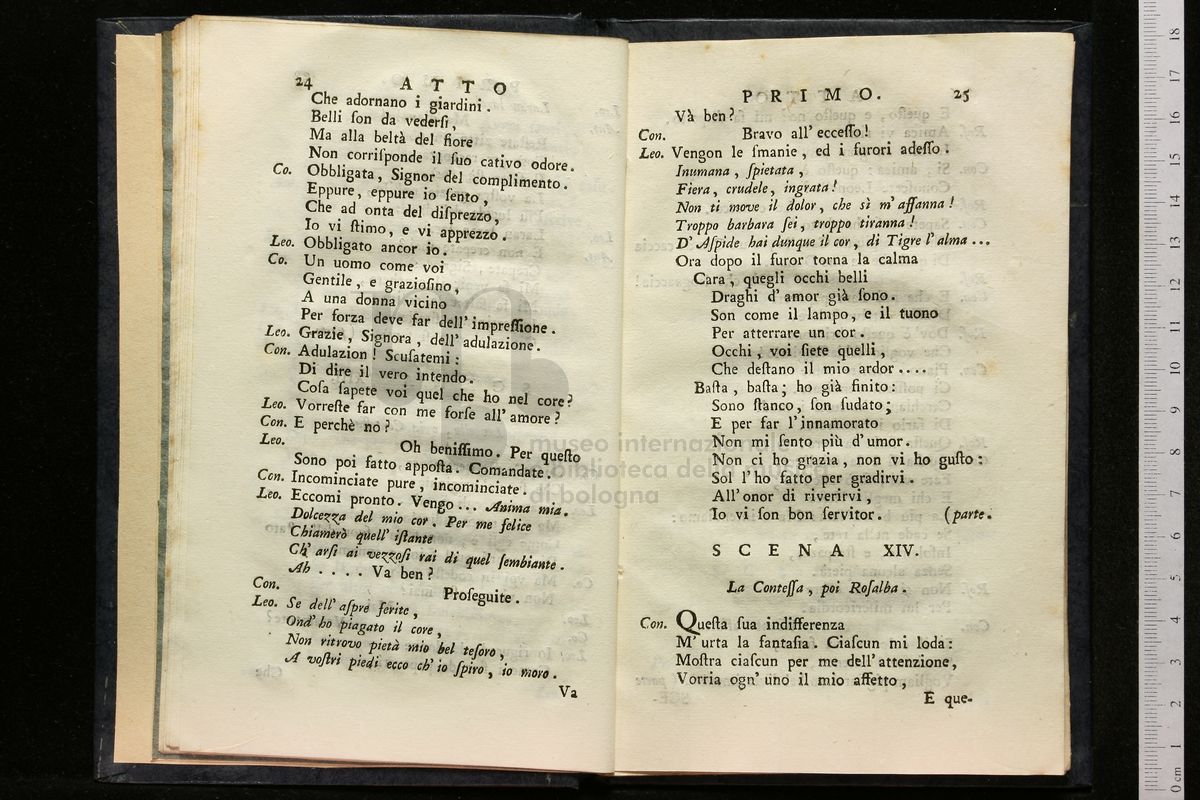 24 ATTO
Che adornano i giardini.
Belli ſon da vederſi,
Ma alla beltà del fiore
Non corriſponde il ſuo cativo odore.
Co. Obbligata, Signor del complimento.
Eppure, eppure io ſento,
Che ad onta del diſprezzo,
Io vi ſtimo, e vi apprezzo.
Leo. Obbligato ancor io.
Co. Un uomo come voi
Gentile, e grazioſino,
A una donna vicino
Per forza deve far dell' impreſſione.
Leo. Grazie, Signora, dell' adulazione.
Con. Adulazion! Scuſatemi:
Di dire il vero intendo.
Coſa ſapete voi quel che ho nel core?
Leo. Vorreſte far con me forſe all' amore?
Con. E perchè no?
Leo. Oh beniſſimo. Per queſto
Sono poi fatto appoſta. Comandate.
Con. Incominciate pure, incominciate.
Leo. Eccomi pronto. Vengo ... Anima mia.
Dolcezza del mio cor. Per me felice
Chiamerò quell' iſtante
Ch' arſi ai vezzoſi rai di quel ſembiante.
Ah .... Va ben?
Con. Proſeguite.
Leo. Se dell' aſpre ferite,
Ond' ho piagato il core,
Non ritrovo pietà mio bel teſoro,
A voſtri piedi ecco ch' io ſpiro, io moro.
Va
PRIMO. 25
Và ben?
Con. Bravo all' ecceſſo!
Leo. Vengon le ſmanie, ed i furori adeſſo.
Inumana, ſpietata,
Fiera, crudele, ingrata!
Non ti move il dolor, che sì m' affanna!
Troppo barbara ſei, troppo tiranna!
D' Aſpide hai dunque il cor, di Tigre l' alma ...
Ora dopo il furor torna la calma
Cara, quegli occhi belli
Draghi d' amor già ſono.
Son come il lampo, e il tuono
Per atterrare un cor.
Occhi, voi ſiete quelli,
Che deſtano il mio ardor....
Baſta, baſta; ho già finito:
Sono ſtanco, ſon ſudato;
E per far l' innamorato
Non mi ſento più d' umor.
Non ci ho grazia, non vi ho guſto:
Sol l' ho fatto per gradirvi.
All' onor di riverirvi,
Io vi ſon bon ſervitor. (parte.
SCENA XIV.
La Conteſſa, poi Roſalba.
Con. Queſta ſua indifferenza
M' urta la fantaſia. Ciaſcun mi loda:
Moſtra ciaſcun per me dell' attenzione,
Vorria ogn' uno il mio affetto,
E que-
museo internazionale
biblioteca della musica
di bologna
18
17
16
15
14
13
12
11
10
9
8
7
6
5
4
3
2
1
0 cm